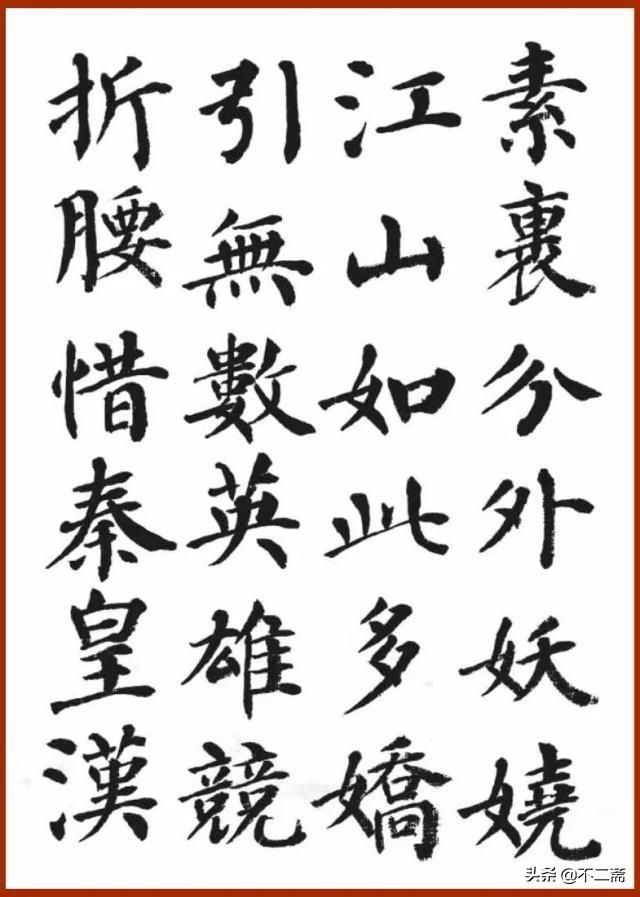 素裹分外妖嬈
江山如此多嬌
引無數英雄競
折腰惜秦皇漢
头条 @不二斋